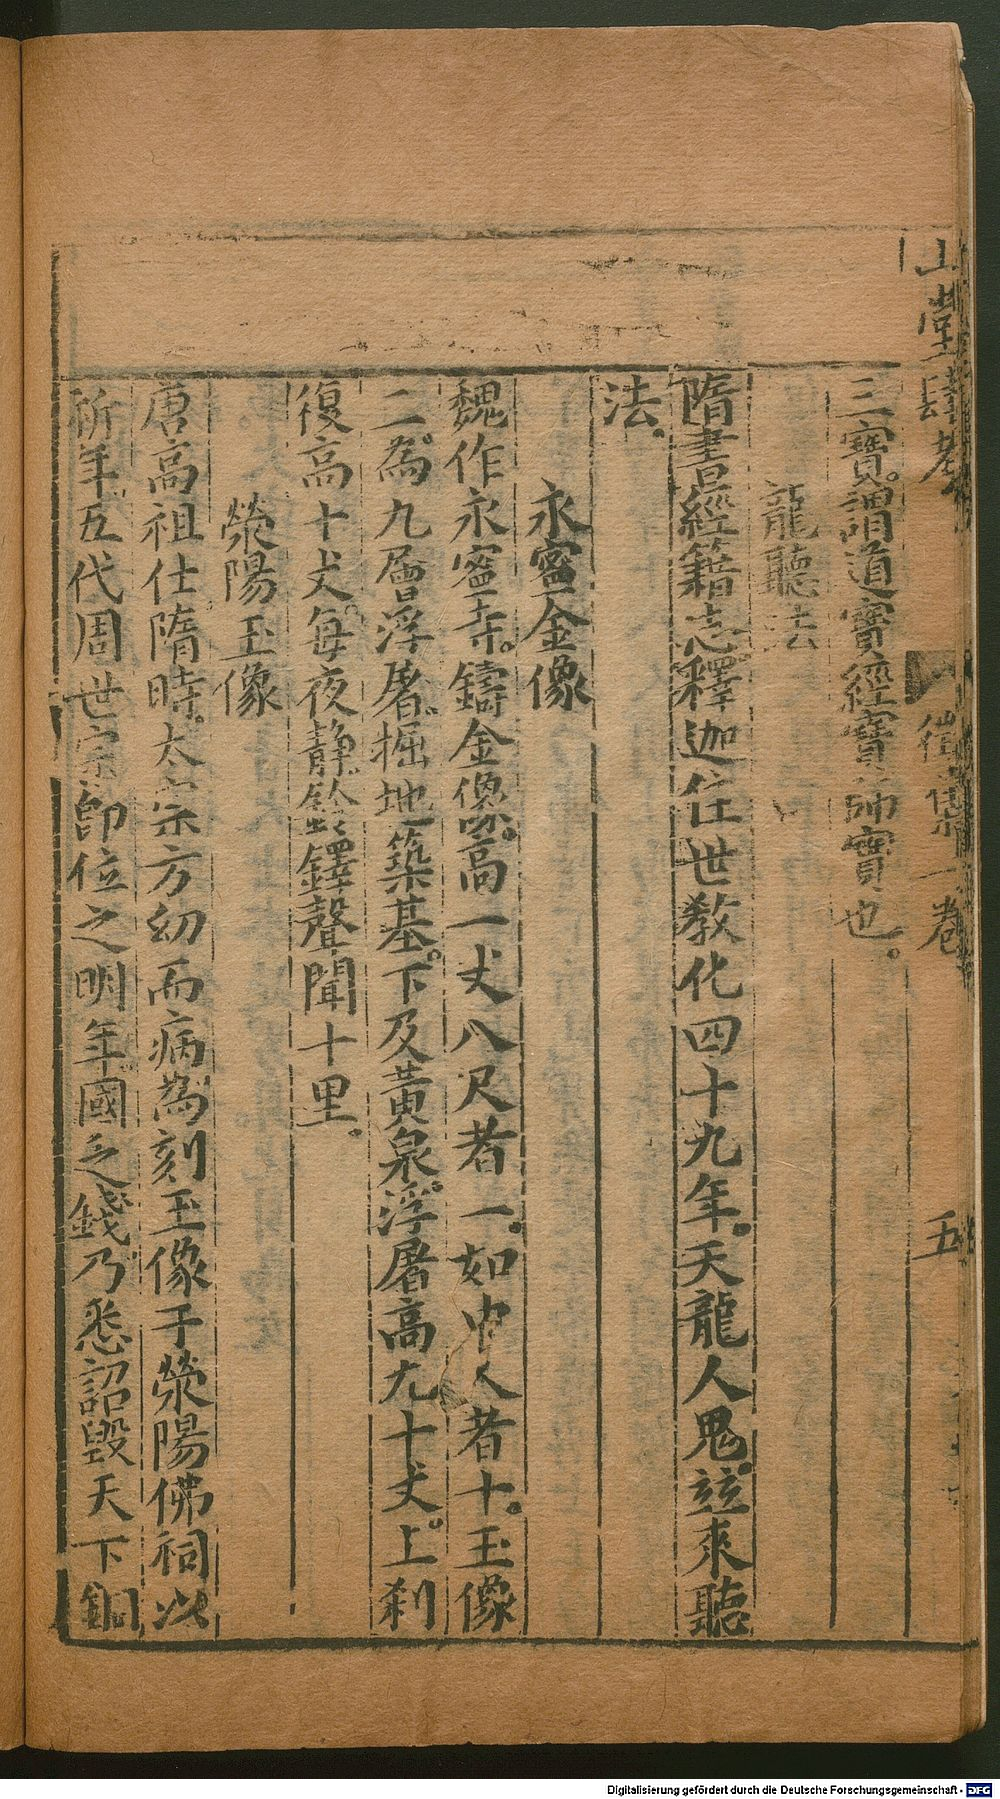 山堂肆考
徴集一卷
五
三寶謂道寶經寶師寶也
龍聽法
隋書經籍志釋迦在世教化四十九年天龍人鬼竝來聽
法
永寧金像
魏作永寧寺鑄金像高一丈八尺者一如中人者十玉像
二為九層浮屠掘地築基下及黃泉浮屠高九十丈上刹
復高十丈每夜靜鈴鐸聲聞十里
滎陽玉像
唐高祖仕隋時太宗方幼而病為刻玉像于滎陽佛祠以
祈年五代周世宗即位之明年國乏錢乃悉詔毀天下銅
Digitalisierung gefördert durch die Deutsche Forschungsgemeinschaft - DFG